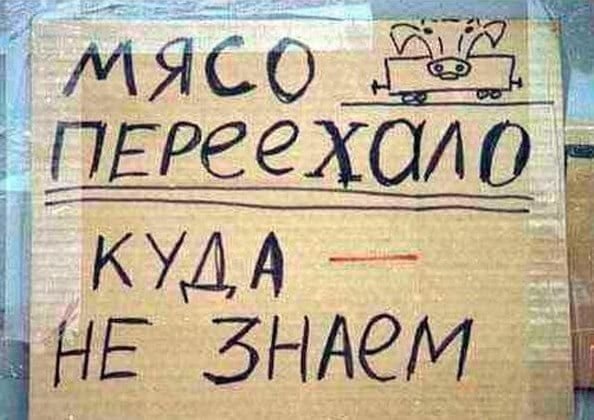 МЯСО
ПЕРееХАЛО
КУДА —
НЕ ЗНАеМ